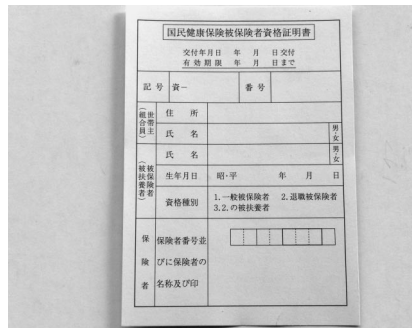 国民健康保険被保険者資格証明書
交付年月日　年　月　日交付
有効期限　年　月　日まで
記号　資－　番号
（組合員）世帯主
住所
氏名　男・女
（被扶養者）被保険者
氏名　男・女
生年月日　昭・平　年　月　日
資格種別　1.一般被保険者　2.退職被保険者
3.2.の被扶養者
保険者
保険者番号並
びに保険者の
名称及び印